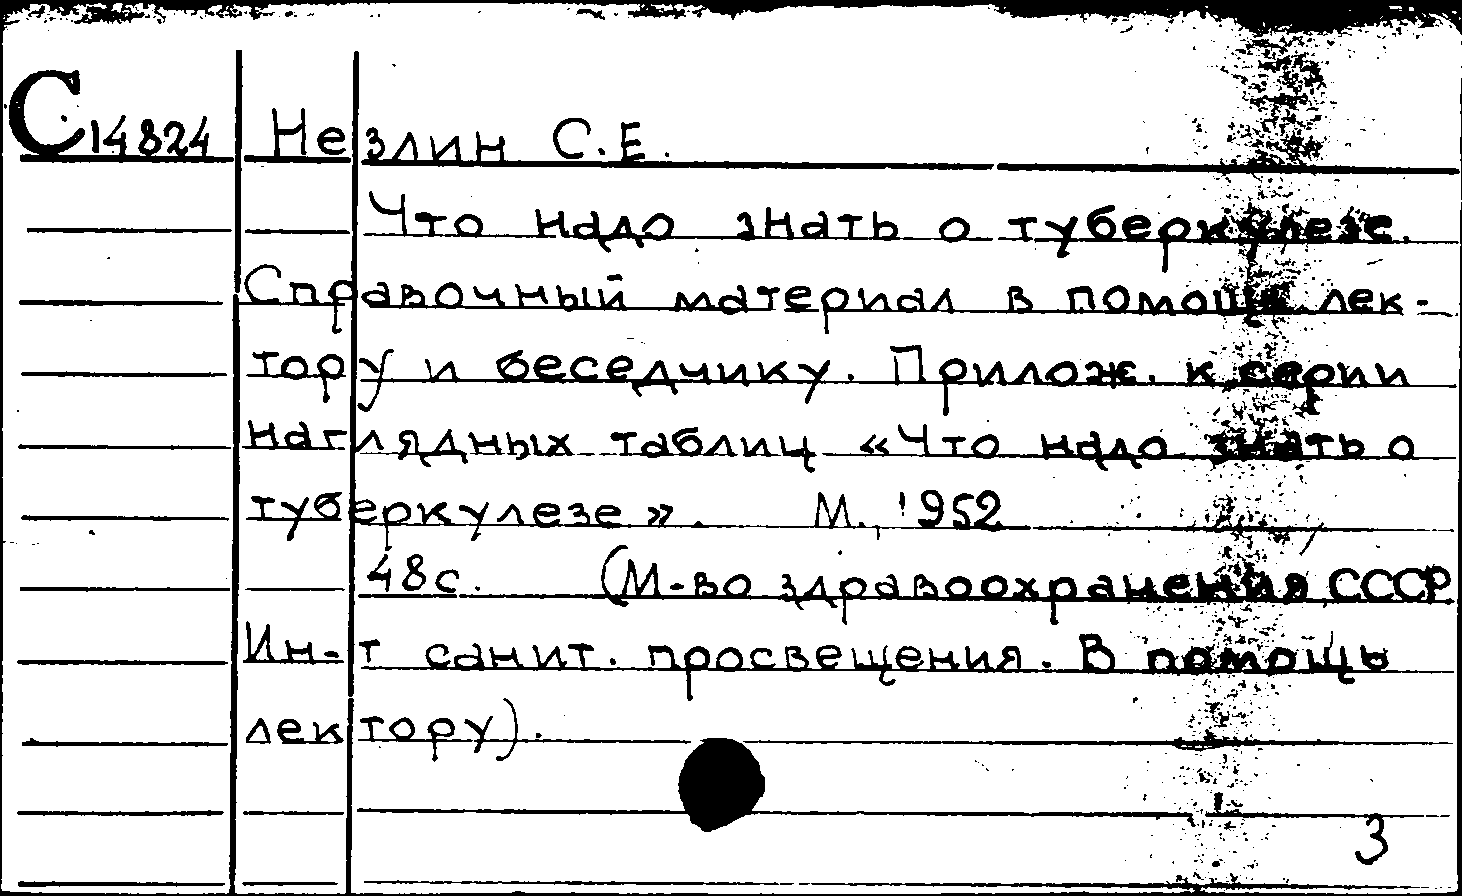 С 14824 Незлин С.Е.
Что надо знать о туберкулезе.
Справочный материал в помощь лек-
тору и беседчику. Прилож. к серии
наглядных таблиц «Что надо знать о
туберкулезе». М., 1952
48с. (М-во здравоохранения СССР
Ин-т санит. просвещения. В помощь
лектору).
3